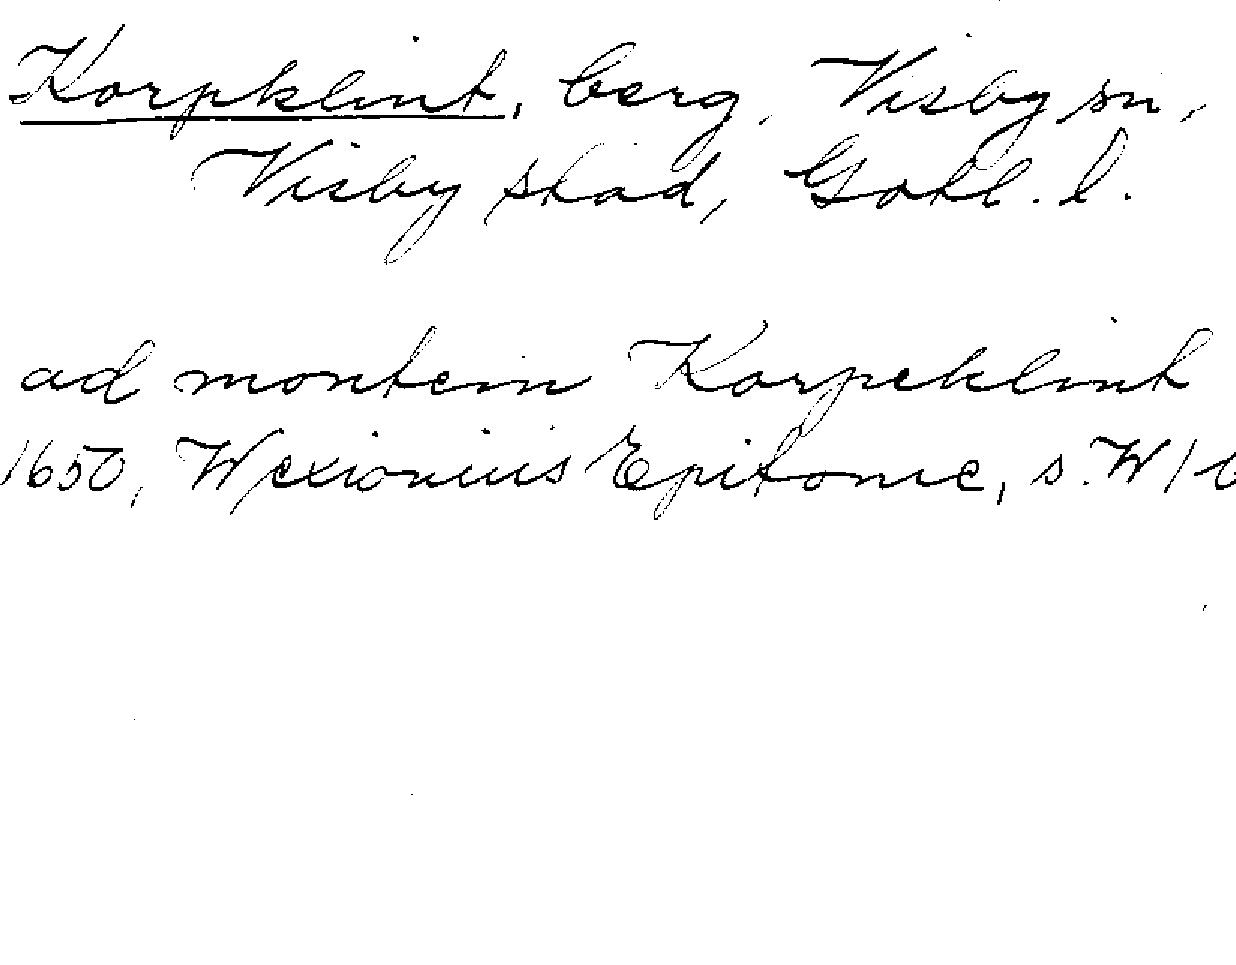 Korpklint, berg, Visby sn,
Visby stad, Gotl. l.
ad montem Korpeklint
1650, Wexionius Epitome, s. W 1 b